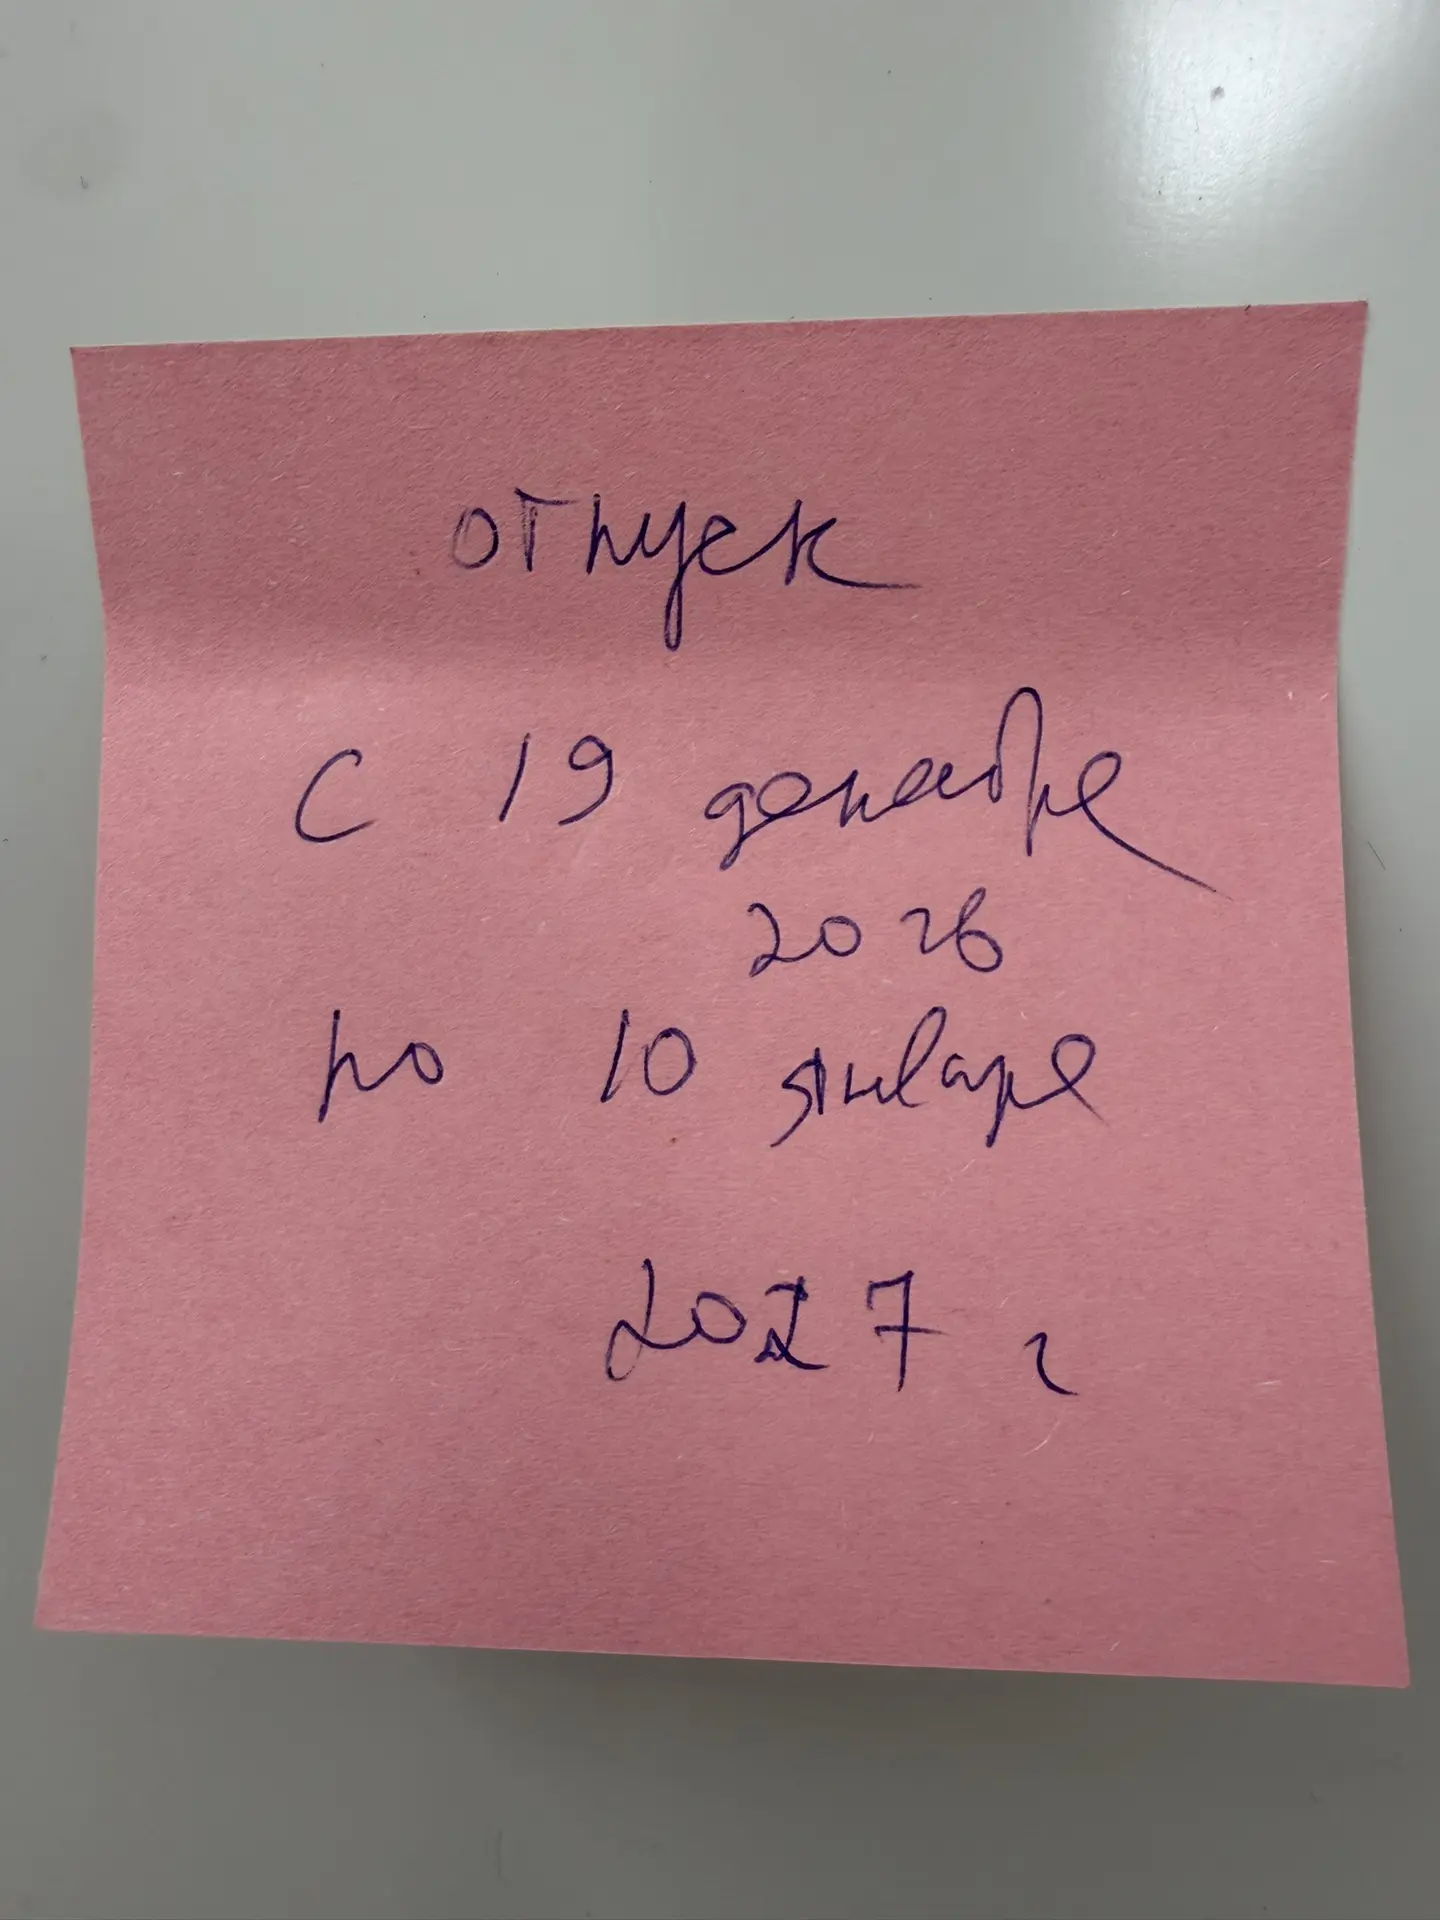 отпуск
с 19 декабре
2026
по 10 январе
2027 г